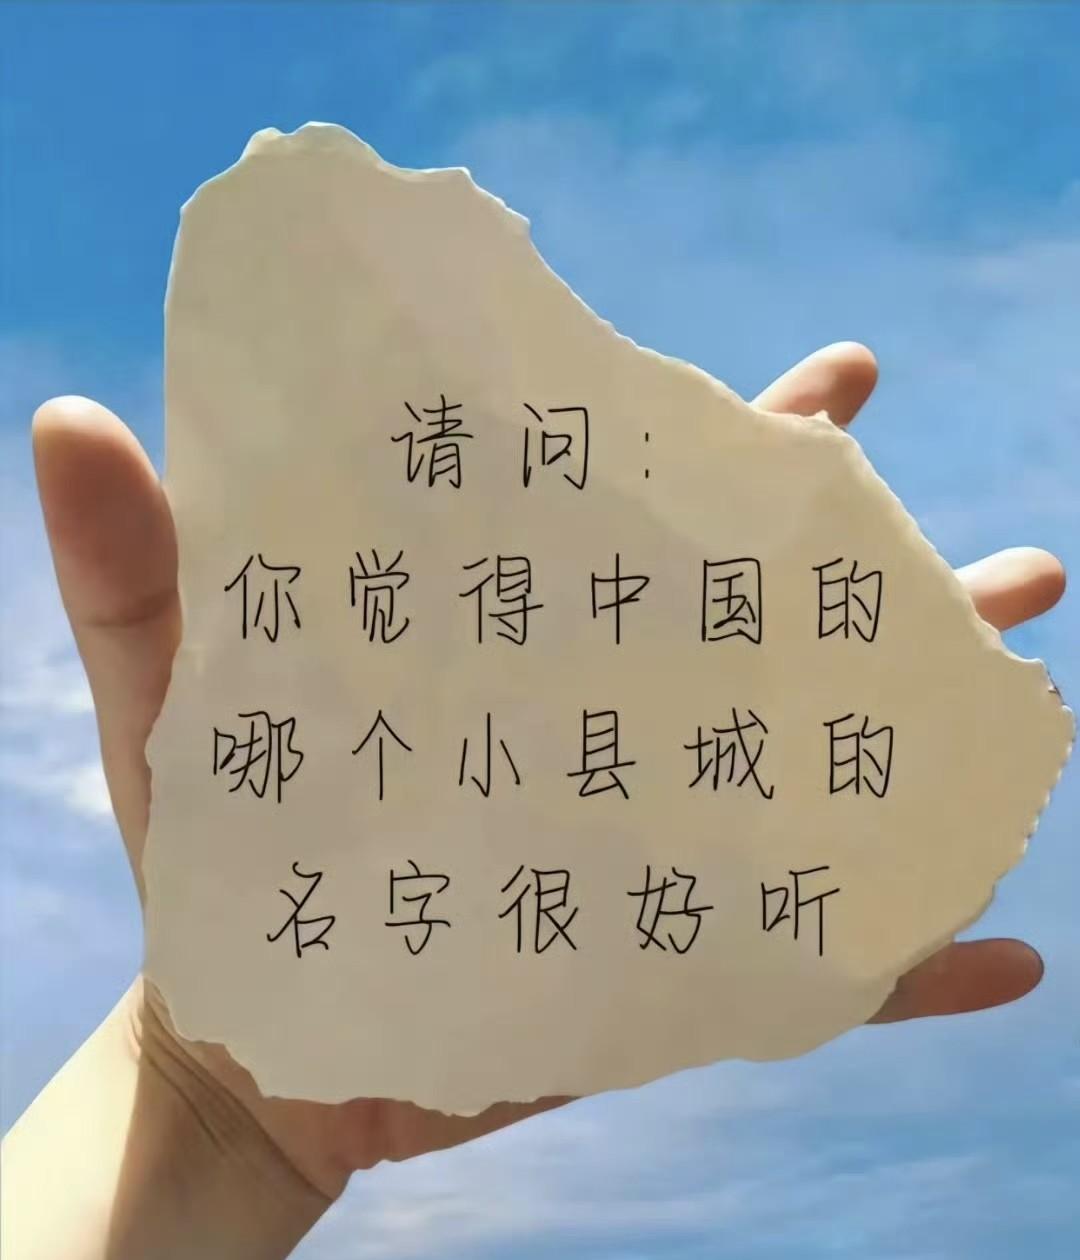 请问:
你觉得中国的
哪个小县城的
名字很好听